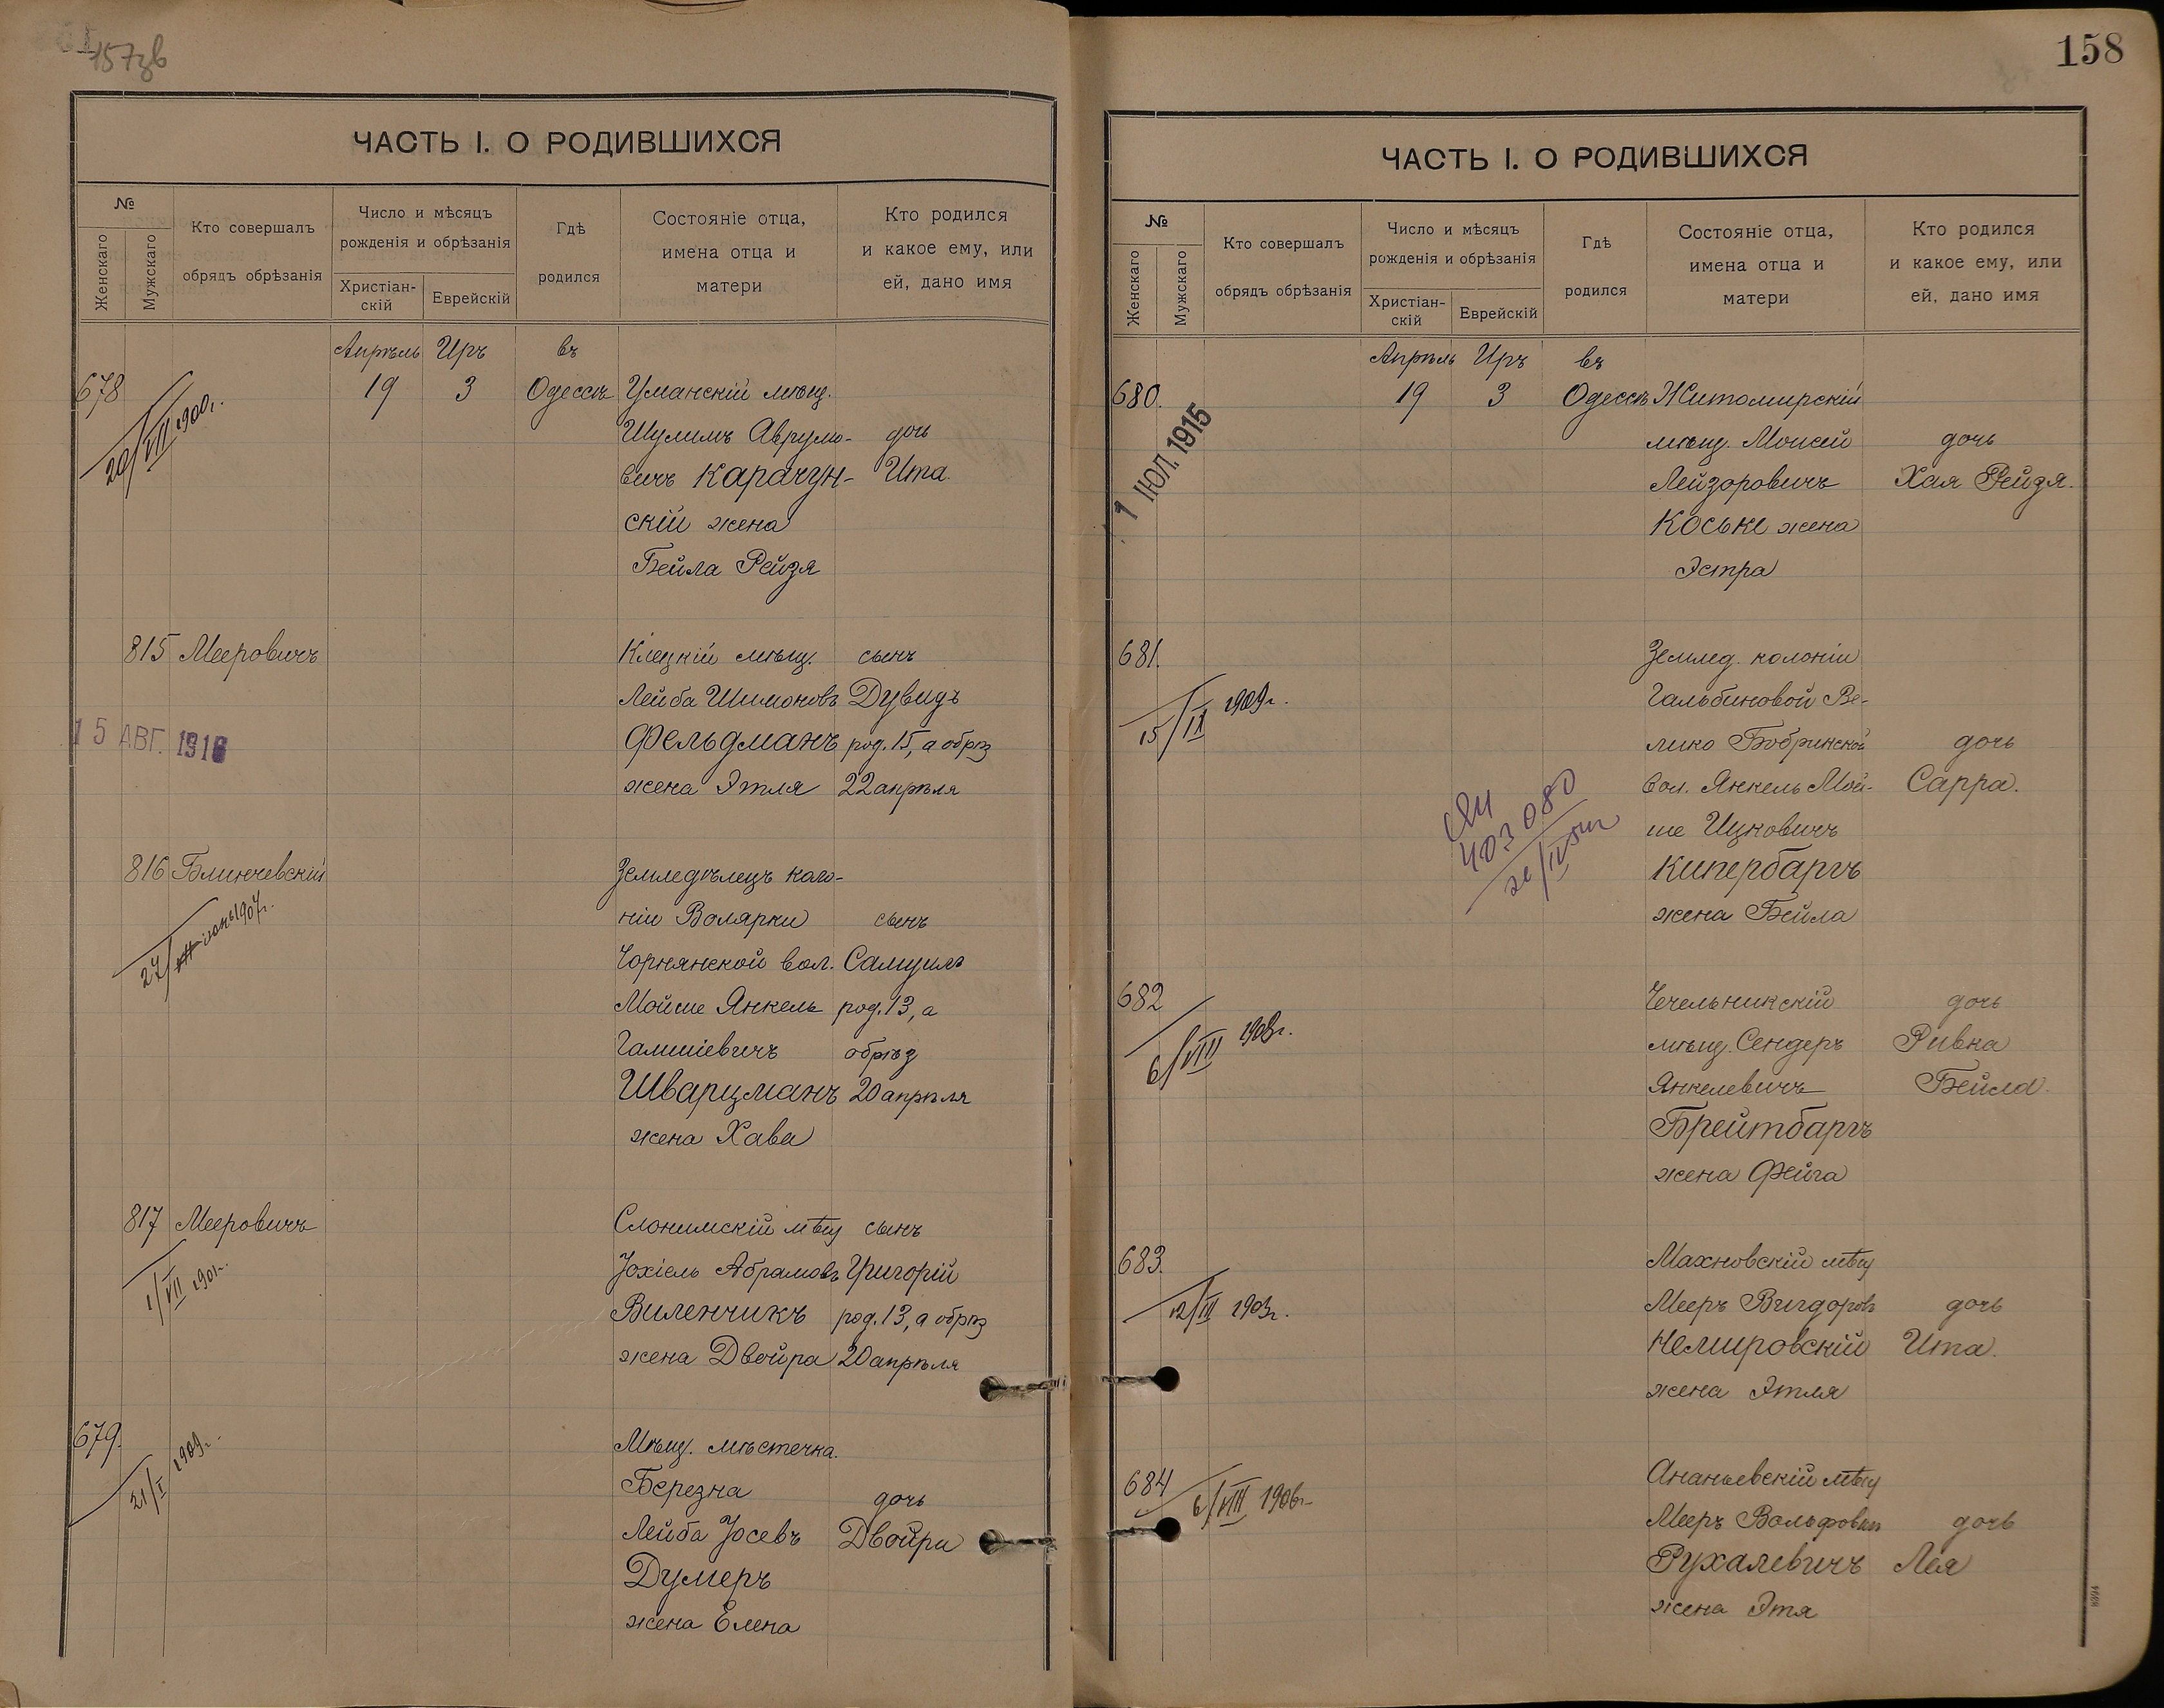 157зв
ЧАСТЬ I. О РОДИВШИХСЯ
№
Женскаго
Мужскаго
Кто совершалъ
обрядъ обрѣзанія
Число и мѣсяцъ
рожденія и обрѣзанія
Христіан-
скій
Еврейскій
Гдѣ
родился
Состояніе отца,
имена отца и
матери
Кто родился
и какое ему, или
ей, дано имя
Апрѣль Иръ въ
678 19 3 Одессѣ Уманскій мѣщ.
20/VII 1900г.
Шулимъ Аврумо- дочь
вичъ Карачун- Ита.
скій жена
Бейла Рейзя
815 Мееровичъ Клецкій мѣщ. сынъ
Лейба Шимоновъ Дувидъ
15 АВГ. 1916
Фельдманъ род. 15, а обрѣз
жена Этля 22 апрѣля
816 Блинчевскій Земледѣлецъ коло-
27/ іюнь 1907г.
ніи Волярки сынъ
Чорнянской вол. Самуилъ
Мойше Янкель род. 13, а
Галшіевичъ обрѣз
Шварцманъ 20 апрѣля
жена Хава
817 Мееровичъ Слонимскій мѣщ сынъ
1/VII 1901г.
Іохіель Абрамовъ Григорій
Виленчикъ род. 13, а обрѣз
жена Двойра 20 апрѣля
679. Мѣщ. мѣстечка
21/I 1909г.
Березна дочь
Лейба Іосевъ Двойра
Думеръ
жена Елена
158
ЧАСТЬ I. О РОДИВШИХСЯ
№
Женскаго
Мужскаго
Кто совершалъ
обрядъ обрѣзанія
Число и мѣсяцъ
рожденія и обрѣзанія
Христіан-
скій
Еврейскій
Гдѣ
родился
Состояніе отца,
имена отца и
матери
Кто родился
и какое ему, или
ей, дано имя
Апрѣль Иръ въ
680. 19 3 Одессѣ Житомирскій
1 ІЮЛ. 1915
мѣщ. Моисей дочь
Лейзоровичъ Хая Рейзя.
Коське жена
Эстра
681. Землед. колоніи
15/IX 1909г.
Гальбиновой Ве-
лико Бобринской дочь
вол. Янкель Мой- Сарра.
ше Ицковичъ
403080
Кипербаргъ
жена Бейла
682 Чечельникскій дочь
6/VIII 1908г.
мѣщ. Сендеръ Ривка
Янкелевичъ Бейла.
Брейтбаргъ
жена Фейга
683. Махновскій мѣщ
12/III 1903г.
Мееръ Вигдоровъ дочь
Немировскій Ита.
жена Этля
684 Ананьевскій мѣщ
6/VIII 1906г.
Мееръ Вольфовичъ дочь
Рухалевичъ Лея
жена Этя